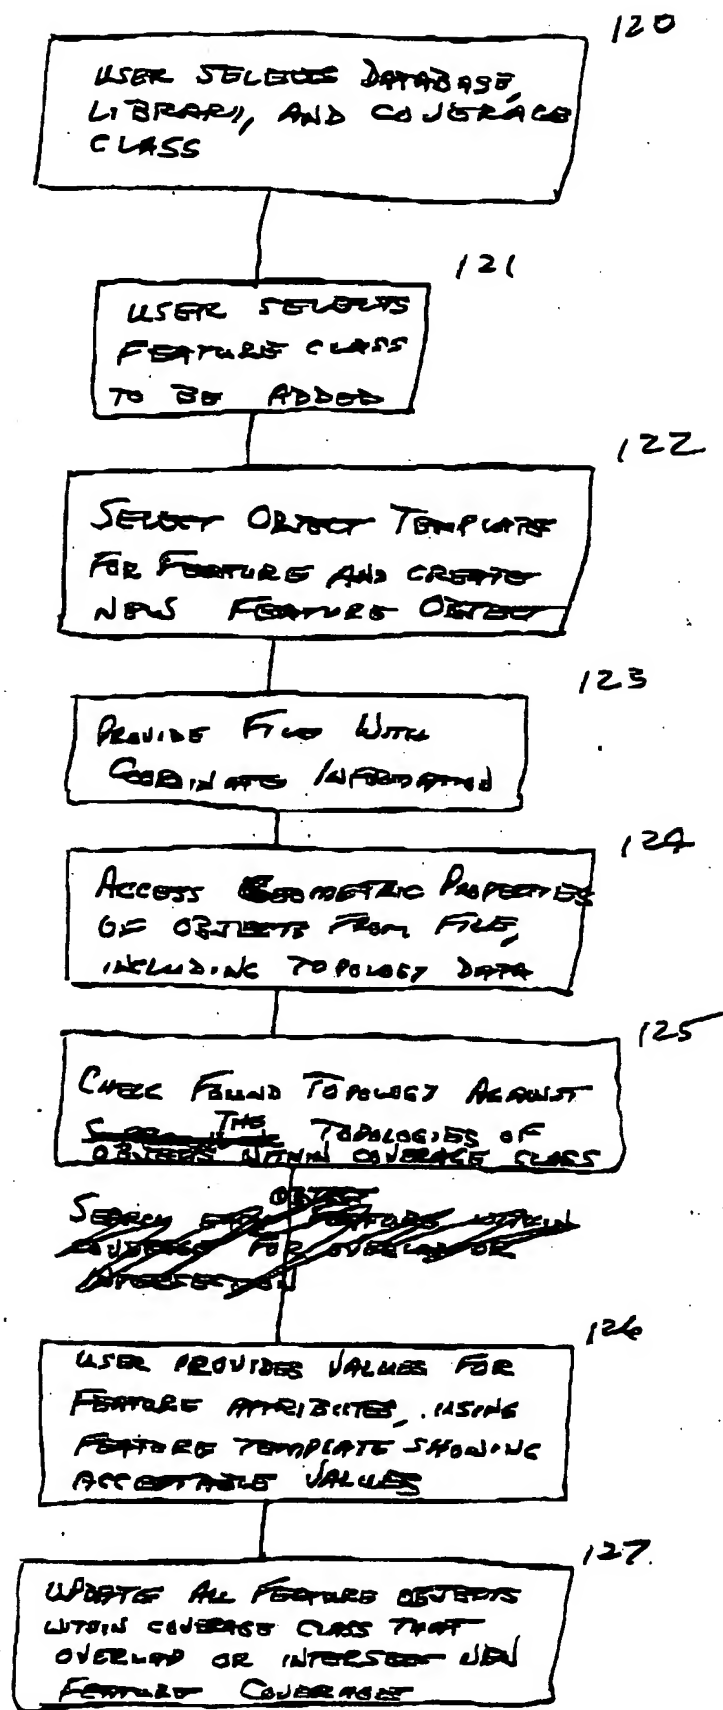 120
USER SELECTS DATABASE,
LIBRARY, AND COVERAGE
CLASS
121
USER SELECTS
FEATURE CLASS
TO BE ADDED
122
SELECT OBJECT TEMPLATE
FOR FEATURE AND CREATE
NEW FEATURE OBJECT
123
PROVIDE FILE WITH
COORDINATE INFORMATION
124
ACCESS GEOMETRIC PROPERTIES
OF OBJECTS FROM FILE,
INCLUDING TOPOLOGY DATA
125
CHECK FOUND TOPOLOGY AGAINST
THE TOPOLOGIES OF
OBJECTS WITHIN COVERAGE CLASS
OBJECT
SEARCH EACH FEATURE WITHIN
COVERAGE FOR OVERLAP OR
INTERSECTION
126
USER PROVIDES VALUES FOR
FEATURE ATTRIBUTES, USING
FEATURE TEMPLATE SHOWING
ACCEPTABLE VALUES
127.
UPDATE ALL FEATURE OBJECTS
WITHIN COVERAGE CLASS THAT
OVERLAP OR INTERSECT NEW
FEATURE COVERAGE